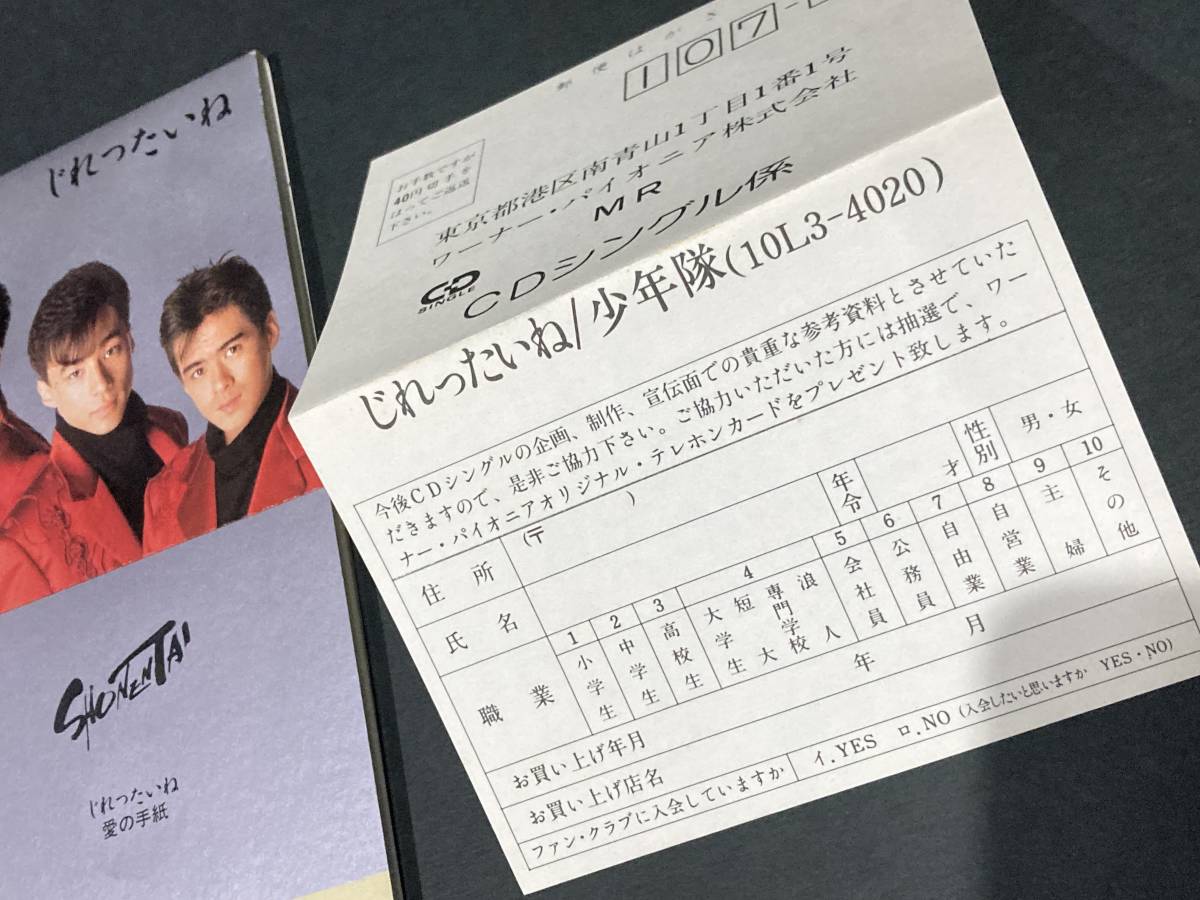 じれったいね
SHONENTAI
じれったいね
愛の手紙
郵便はがき
107-
お手数ですが
40円切手を
はってご返送
下さい。
東京都港区南青山1丁目1番1号
ワーナー・パイオニア株式会社
MR
CD SINGLE
CDシングル係
じれったいね/少年隊(10L3-4020)
今後CDシングルの企画、制作、宣伝面での貴重な参考資料とさせていた
だきますので、是非ご協力下さい。ご協力いただいた方には抽選で、ワー
ナー・パイオニアオリジナル・テレホンカードをプレゼント致します。
住所 (〒 )
氏名 年令 才 性別 男・女
職業 1 小学生 2 中学生 3 高校生 4 大学生 短大 専門学校 浪人 5 会社員 6 公務員 7 自由業 8 自営業 9 主婦 10 その他
お買い上げ年月 年 月
お買い上げ店名
ファン・クラブに入会していますか イ.YES ロ.NO (入会したいと思いますか YES・NO)